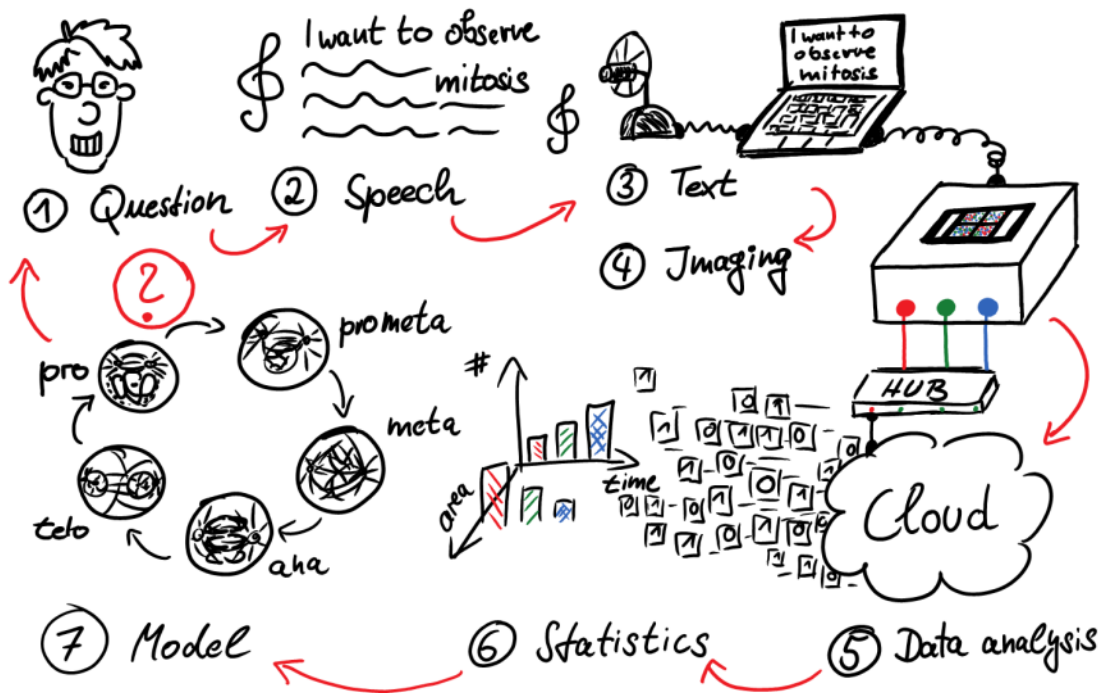 I want to observe
mitosis
I want to
observe
mitosis
1 Question
2 Speech
3 Text
4 Imaging
?
pro
prometa
meta
ana
telo
#
time
area
HUB
Cloud
1
0 1
1 0 1 1 0
0 0 1
0 1 0 1
1 1 0 1 0
1 1 0
7 Model
6 Statistics
5 Data analysis